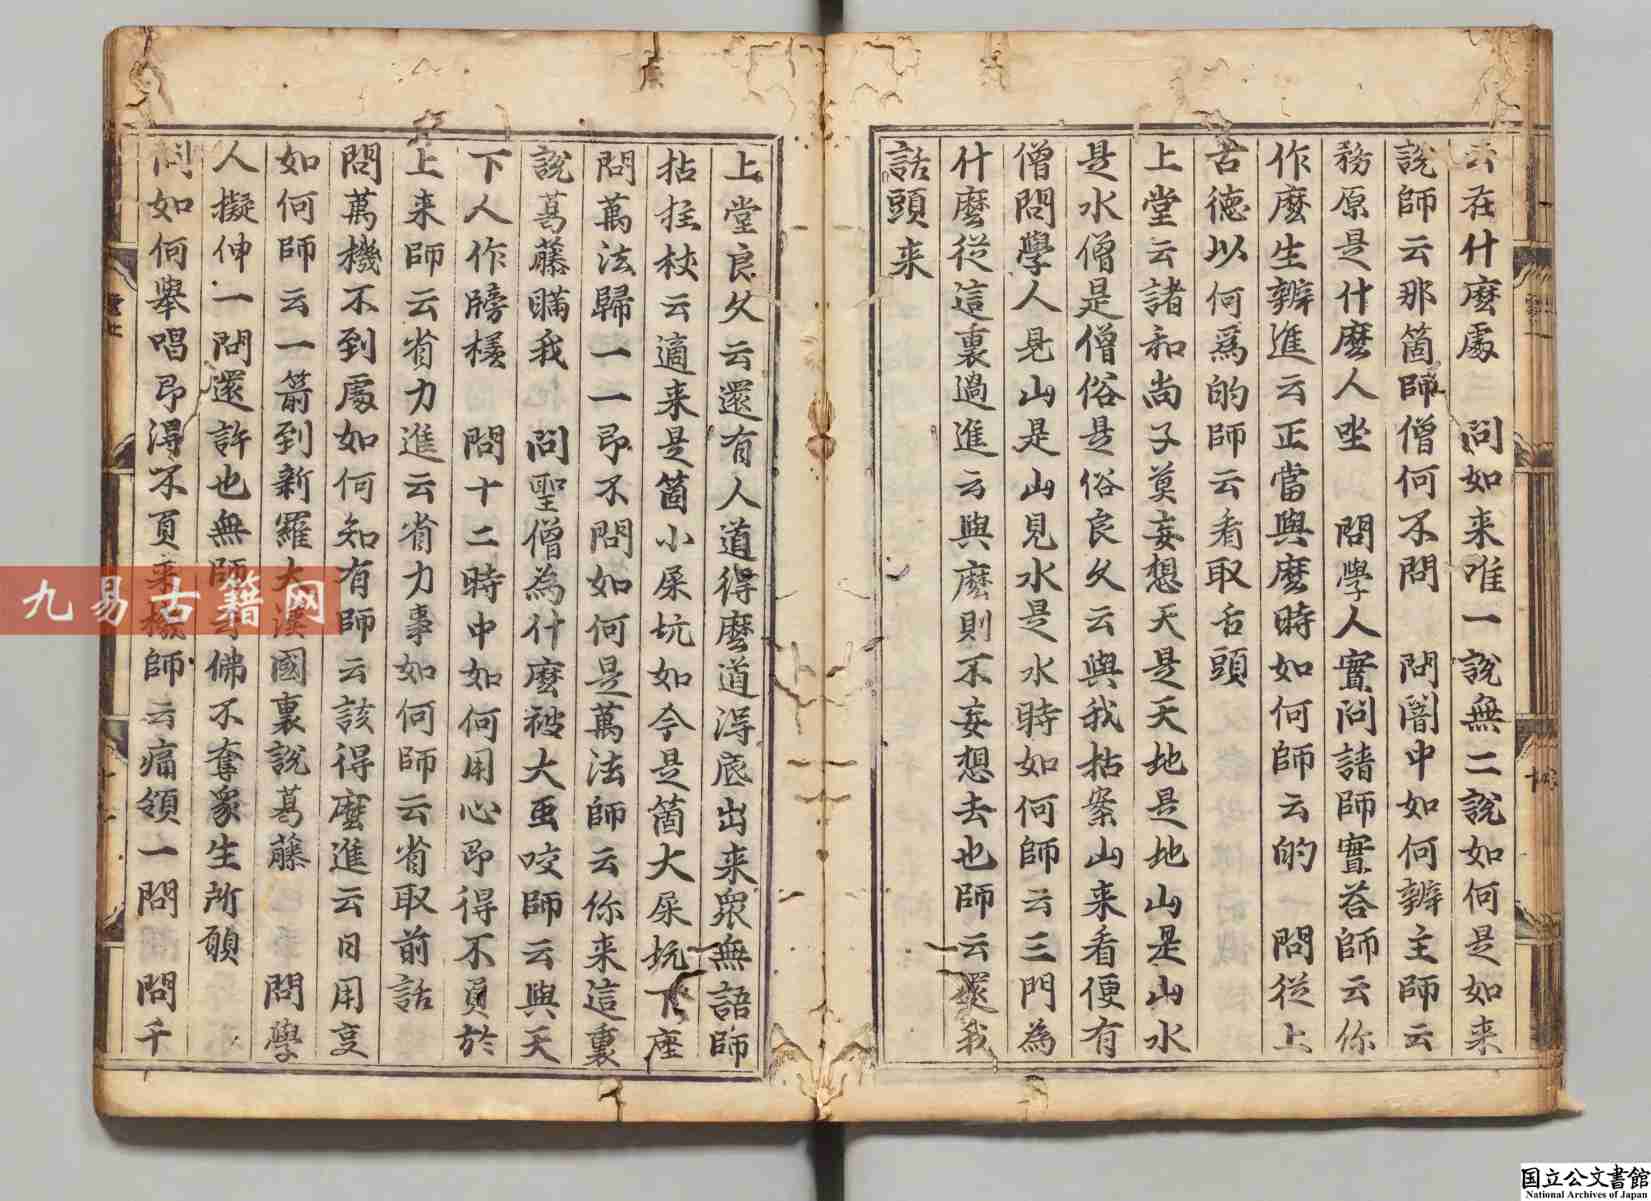 云在什麽處　問如来唯一説無二説如何是如来
説師云那箇師僧何不問　問闇中如何辨主師云
務原是什麽人㘴　問學人實問請師實荅師云你
作麽生辨進云正當與麽時如何師云的　問從上
古德以何爲的師云看取舌頭
上堂云諸和尚子莫妄想天是天地是地山是山水
是水僧是僧俗是俗良久云與我拈案山来看便有
僧問學人見山是山見水是水時如何師云三門爲
什麽從這裏過進云與麽則不妄想去也師云還我
話頭来
上堂良久云還有人道得麽道得底出来衆無語師
拈拄杖云適来是箇小屎坑如今是箇大屎坑下座
問萬法歸一一即不問如何是萬法師云你来這裏
説葛藤瞞我　問聖僧為什麽被大䖝咬師云與天
下人作牓樣　問十二時中如何用心即得不負於
上来師云省力進云省力事如何師云省取前話
問萬機不到處如何知有師云該得麽進云日用事
如何師云一箭到新羅大漢國裏説葛藤　問學
人擬伸一問還許也無師云佛不奪衆生所願
問如何舉唱即得不負来機師云痛領一問　問千
九易古籍网
国立公文書館
National Archives of Japan